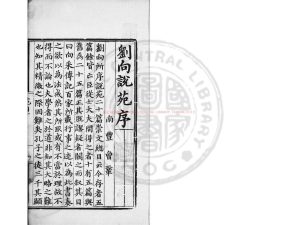 劉向說苑序
南豐曾鞏
劉向所序說苑二十篇崇文總目云今存者五
篇餘皆亡臣從士大夫間得之者十有五篇與
舊為二十五篇正其脫謬疑者闕之而叙其目
曰向采傳記百家所載行事之迹以為此書奏
之欲以為法戒然其所取或有不當於理故不
得而不論也夫學者之於道非知其大略之難
也知其精微之際固難矣孔子之徒三千其顯